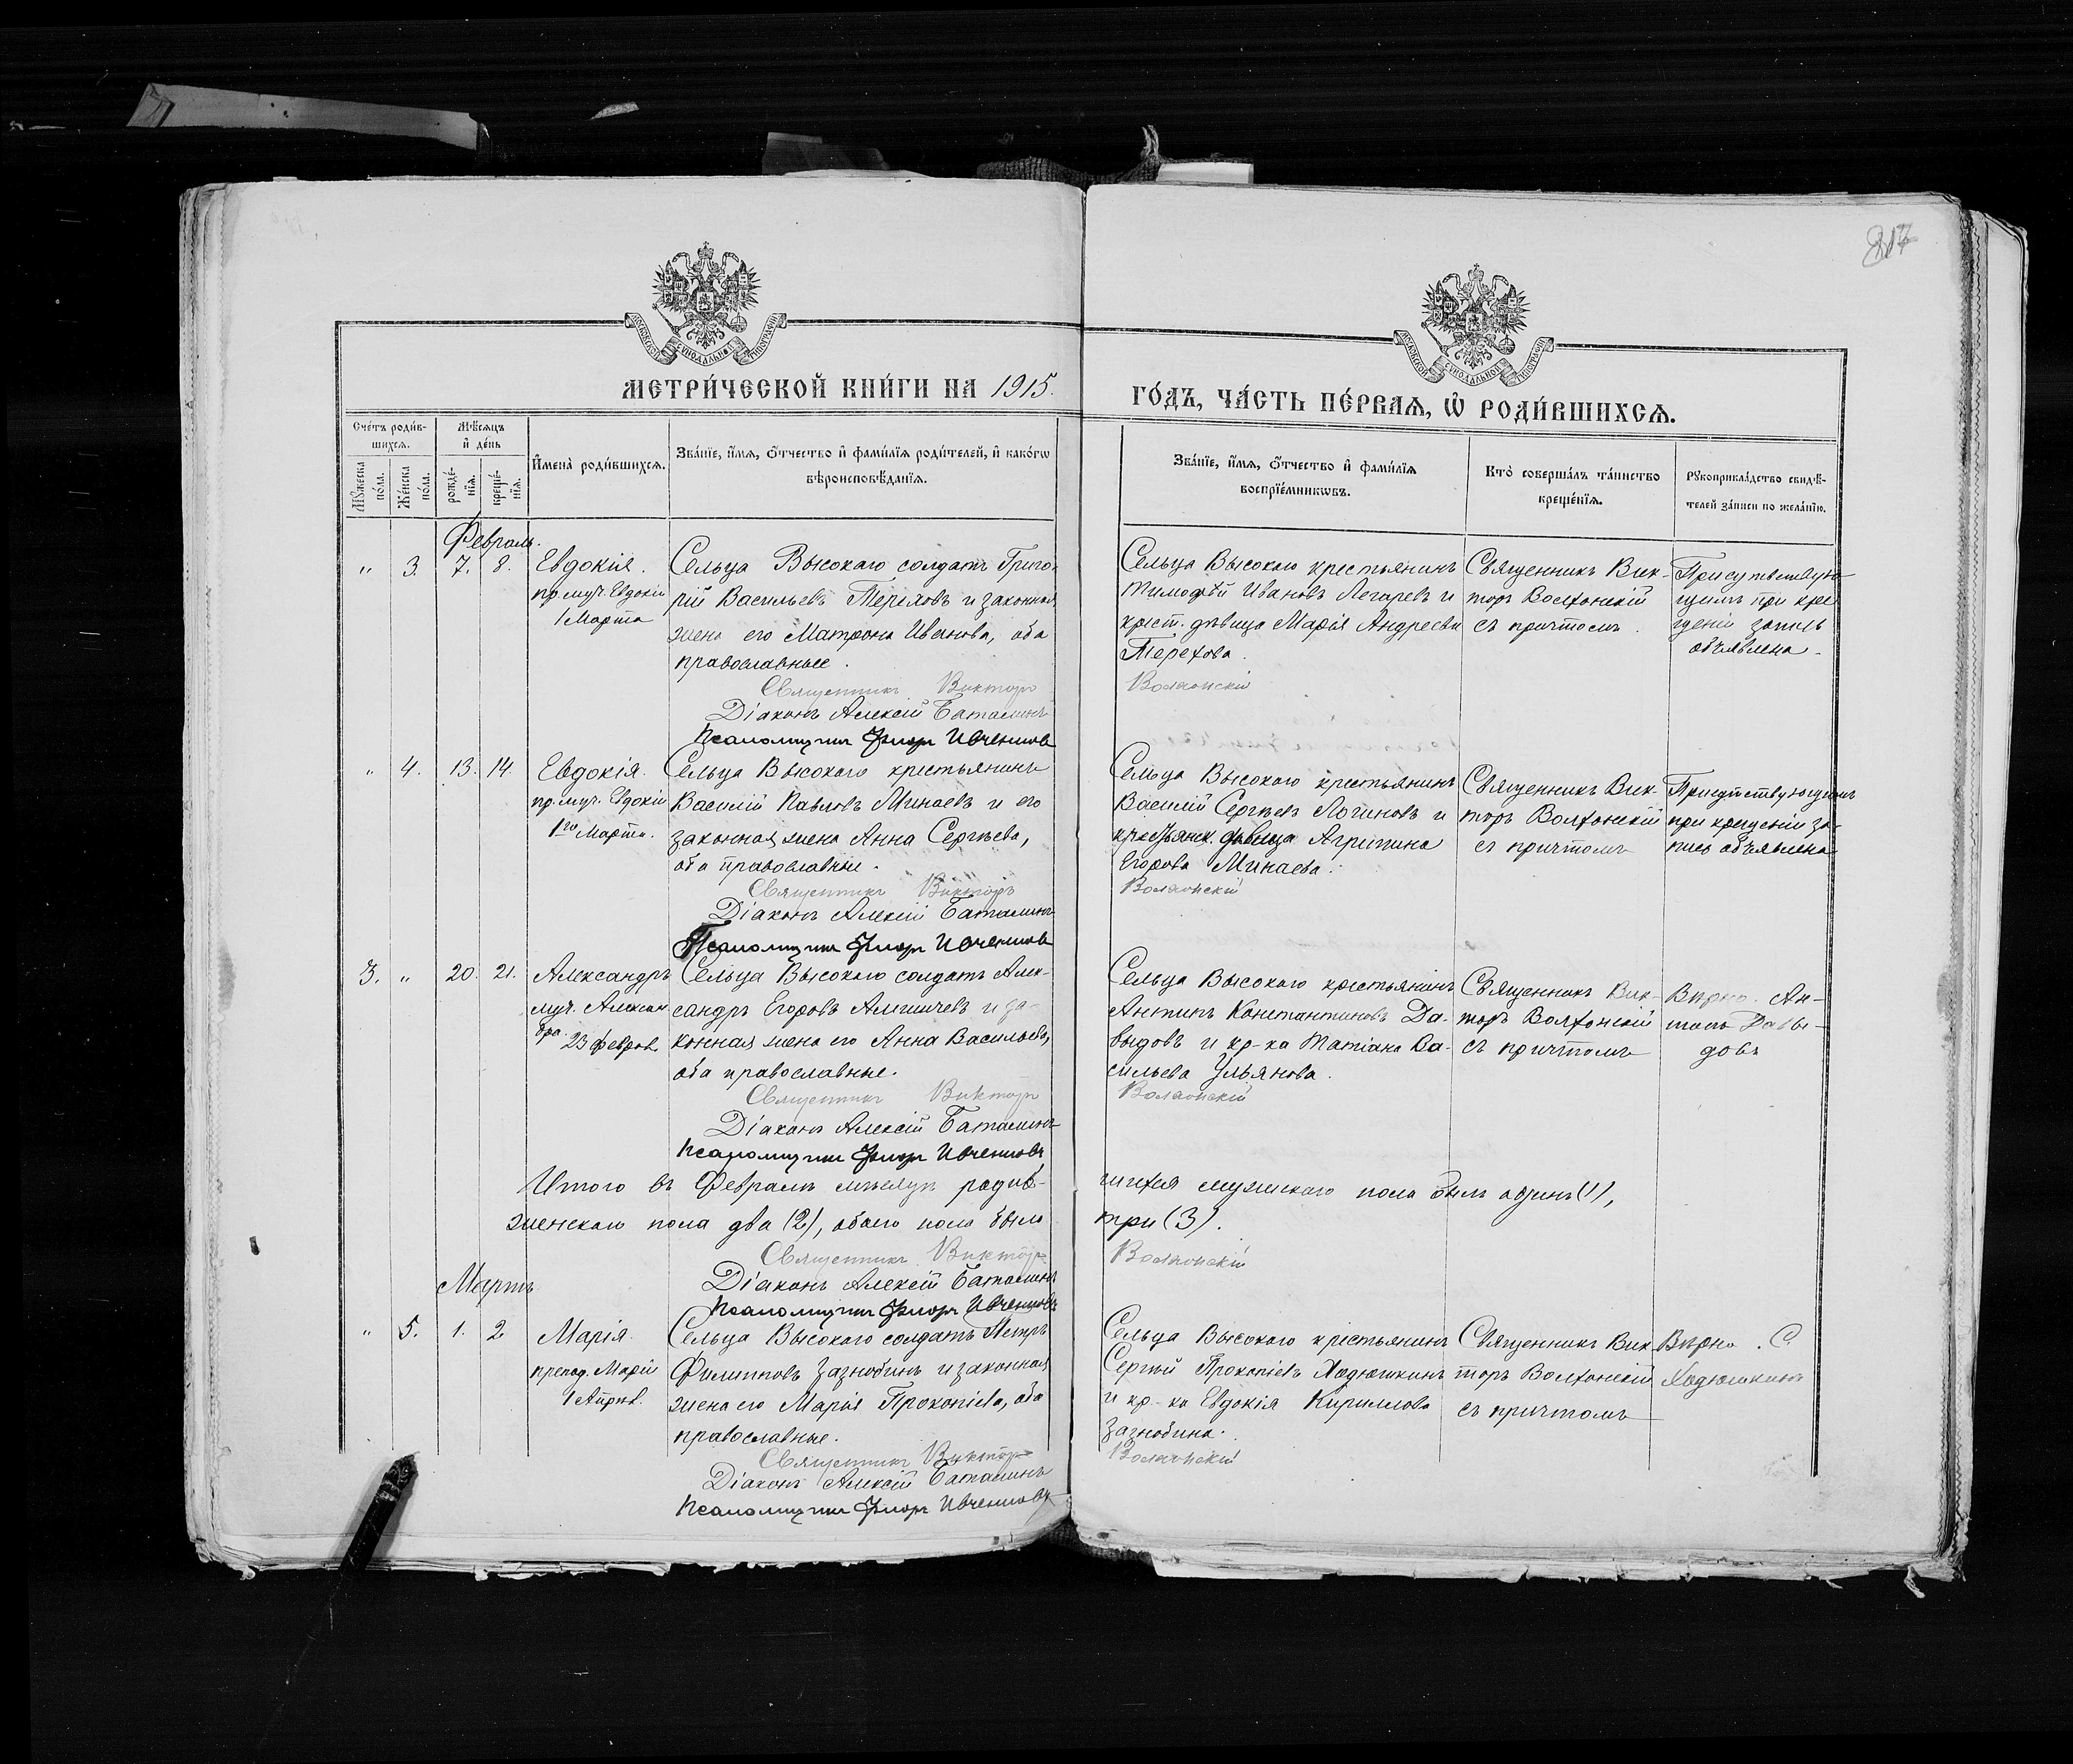 217
МОСКОВСКОЙ СѴНОДАЛЬНОЙ ТИПОГРАФІИ
МОСКОВСКОЙ СѴНОДАЛЬНОЙ ТИПОГРАФІИ
МЕТРИ́ЧЕСКОЙ КНИ́ГИ НА 1915.
ГО́ДЪ, ЧА́СТЬ ПЕ́РВАЯ, Ѡ҆ РОДИ́ВШИХСЯ.
Сче́тъ роди́в-
шихся.
Мѣ́сяцъ
и҆ де́нь
Мꙋ́жеска
по́ла.
Же́нска
по́ла.
рожде́-
нїя.
креще́-
нїя.
И҆мена̀ роди́вшихся.
Зва́нїе, и҆́мя, ѻ҆́тчество и҆ фами́лїя роди́телей, и҆ како́гѡ
вѣроисповѣ́данїя.
Зва́нїе, и҆́мя, ѻ҆́тчество и҆ фами́лїя
воспрїе́мникѡвъ.
Кто̀ соверша́лъ та́инство
креще́нїя.
Рꙋкоприкла́дство свидѣ́-
телей за́писи по жела́нїю.
Февраль.
" 3. 7. 8.
Евдокія.
пр. муч. Евдокіи
1 Марта
Сельца Высокаго солдатъ Григо-
рій Васильевъ Тереховъ и законная
жена его Матрона Иванова, оба
православные.
Священникъ Викторъ
Діаконъ Алексій Баталинъ
Псаломщикъ Флоръ Ивченковъ
Сельца Высокаго крестьянинъ
Тимофей Ивановъ Легаревъ и
крест. дѣвица Марія Андреева
Терехова.
Волхонскій
Священникъ Вик-
торъ Волхонскій
съ причтомъ.
Присутствую-
щимъ при кре-
щеніи запись
объявлена.
" 4. 13. 14.
Евдокія.
пр. муч. Евдокіи
1го Марта.
Сельца Высокаго крестьянинъ
Василій Павловъ Минаевъ и его
законная жена Анна Сергѣева,
оба православные.
Священникъ Викторъ
Діаконъ Алексій Баталинъ
Псаломщикъ Флоръ Ивченковъ
Сельца Высокаго крестьянинъ
Василій Сергѣевъ Логиновъ и
крестьянск. дѣвица Агрипина
Егорова Минаева.
Волхонскій
Священникъ Вик-
торъ Волхонскій
съ причтомъ
Присутствующимъ
при крещеніи за-
пись объявлена
3. " 20. 21.
Александръ
муч. Алексан
дра 23 феврал.
Сельца Высокаго солдатъ Алек-
сандръ Егоровъ и за-
конная жена его Анна Васильева,
оба православные.
Священникъ Викторъ
Діаконъ Алексій Баталинъ
Псаломщикъ Флоръ Ивченковъ
Сельца Высокаго крестьянинъ
Антипъ Константиновъ Да-
выдовъ и кр-ка Татіана Ва-
сильева Ульянова.
Волхонскій
Священникъ Вик-
торъ Волхонскій
съ причтомъ
Вѣрно. Ан-
типъ Давы-
довъ
Итого въ Февралѣ мѣсяцѣ родив-
шихся мужскаго пола былъ одинъ (1),
женскаго пола два (2), обоего пола было
три (3).
Священникъ Викторъ
Волхонскій
Діаконъ Алексій Баталинъ
Псаломщикъ Флоръ Ивченковъ
Мартъ
" 5. 1. 2
Марія
препод. Маріи
1 Апрѣл.
Сельца Высокаго солдатъ Петръ
Филипповъ Зазнобинъ и законная
жена его Марія Прокопіева, оба
православные.
Священникъ Викторъ
Діаконъ Алексій Баталинъ
Псаломщикъ Флоръ Ивченковъ
Сельца Высокаго крестьянинъ
Сергѣй Прокопіевъ Ходюшкинъ
и кр-ка Евдокія Кириллова
Зазнобина.
Волхонскій
Священникъ Вик-
торъ Волхонскій
съ причтомъ
Вѣрно. С.
Ходюшкинъ